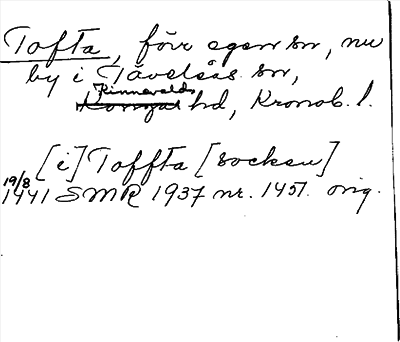 Tofta, förr egen sn, nu
by i Tävelsås sn,
Kinnevalds hd, Kronob. l.
[i] Toffta [socken]
19/8
1441 SMR 1937 nr. 1451. orig.